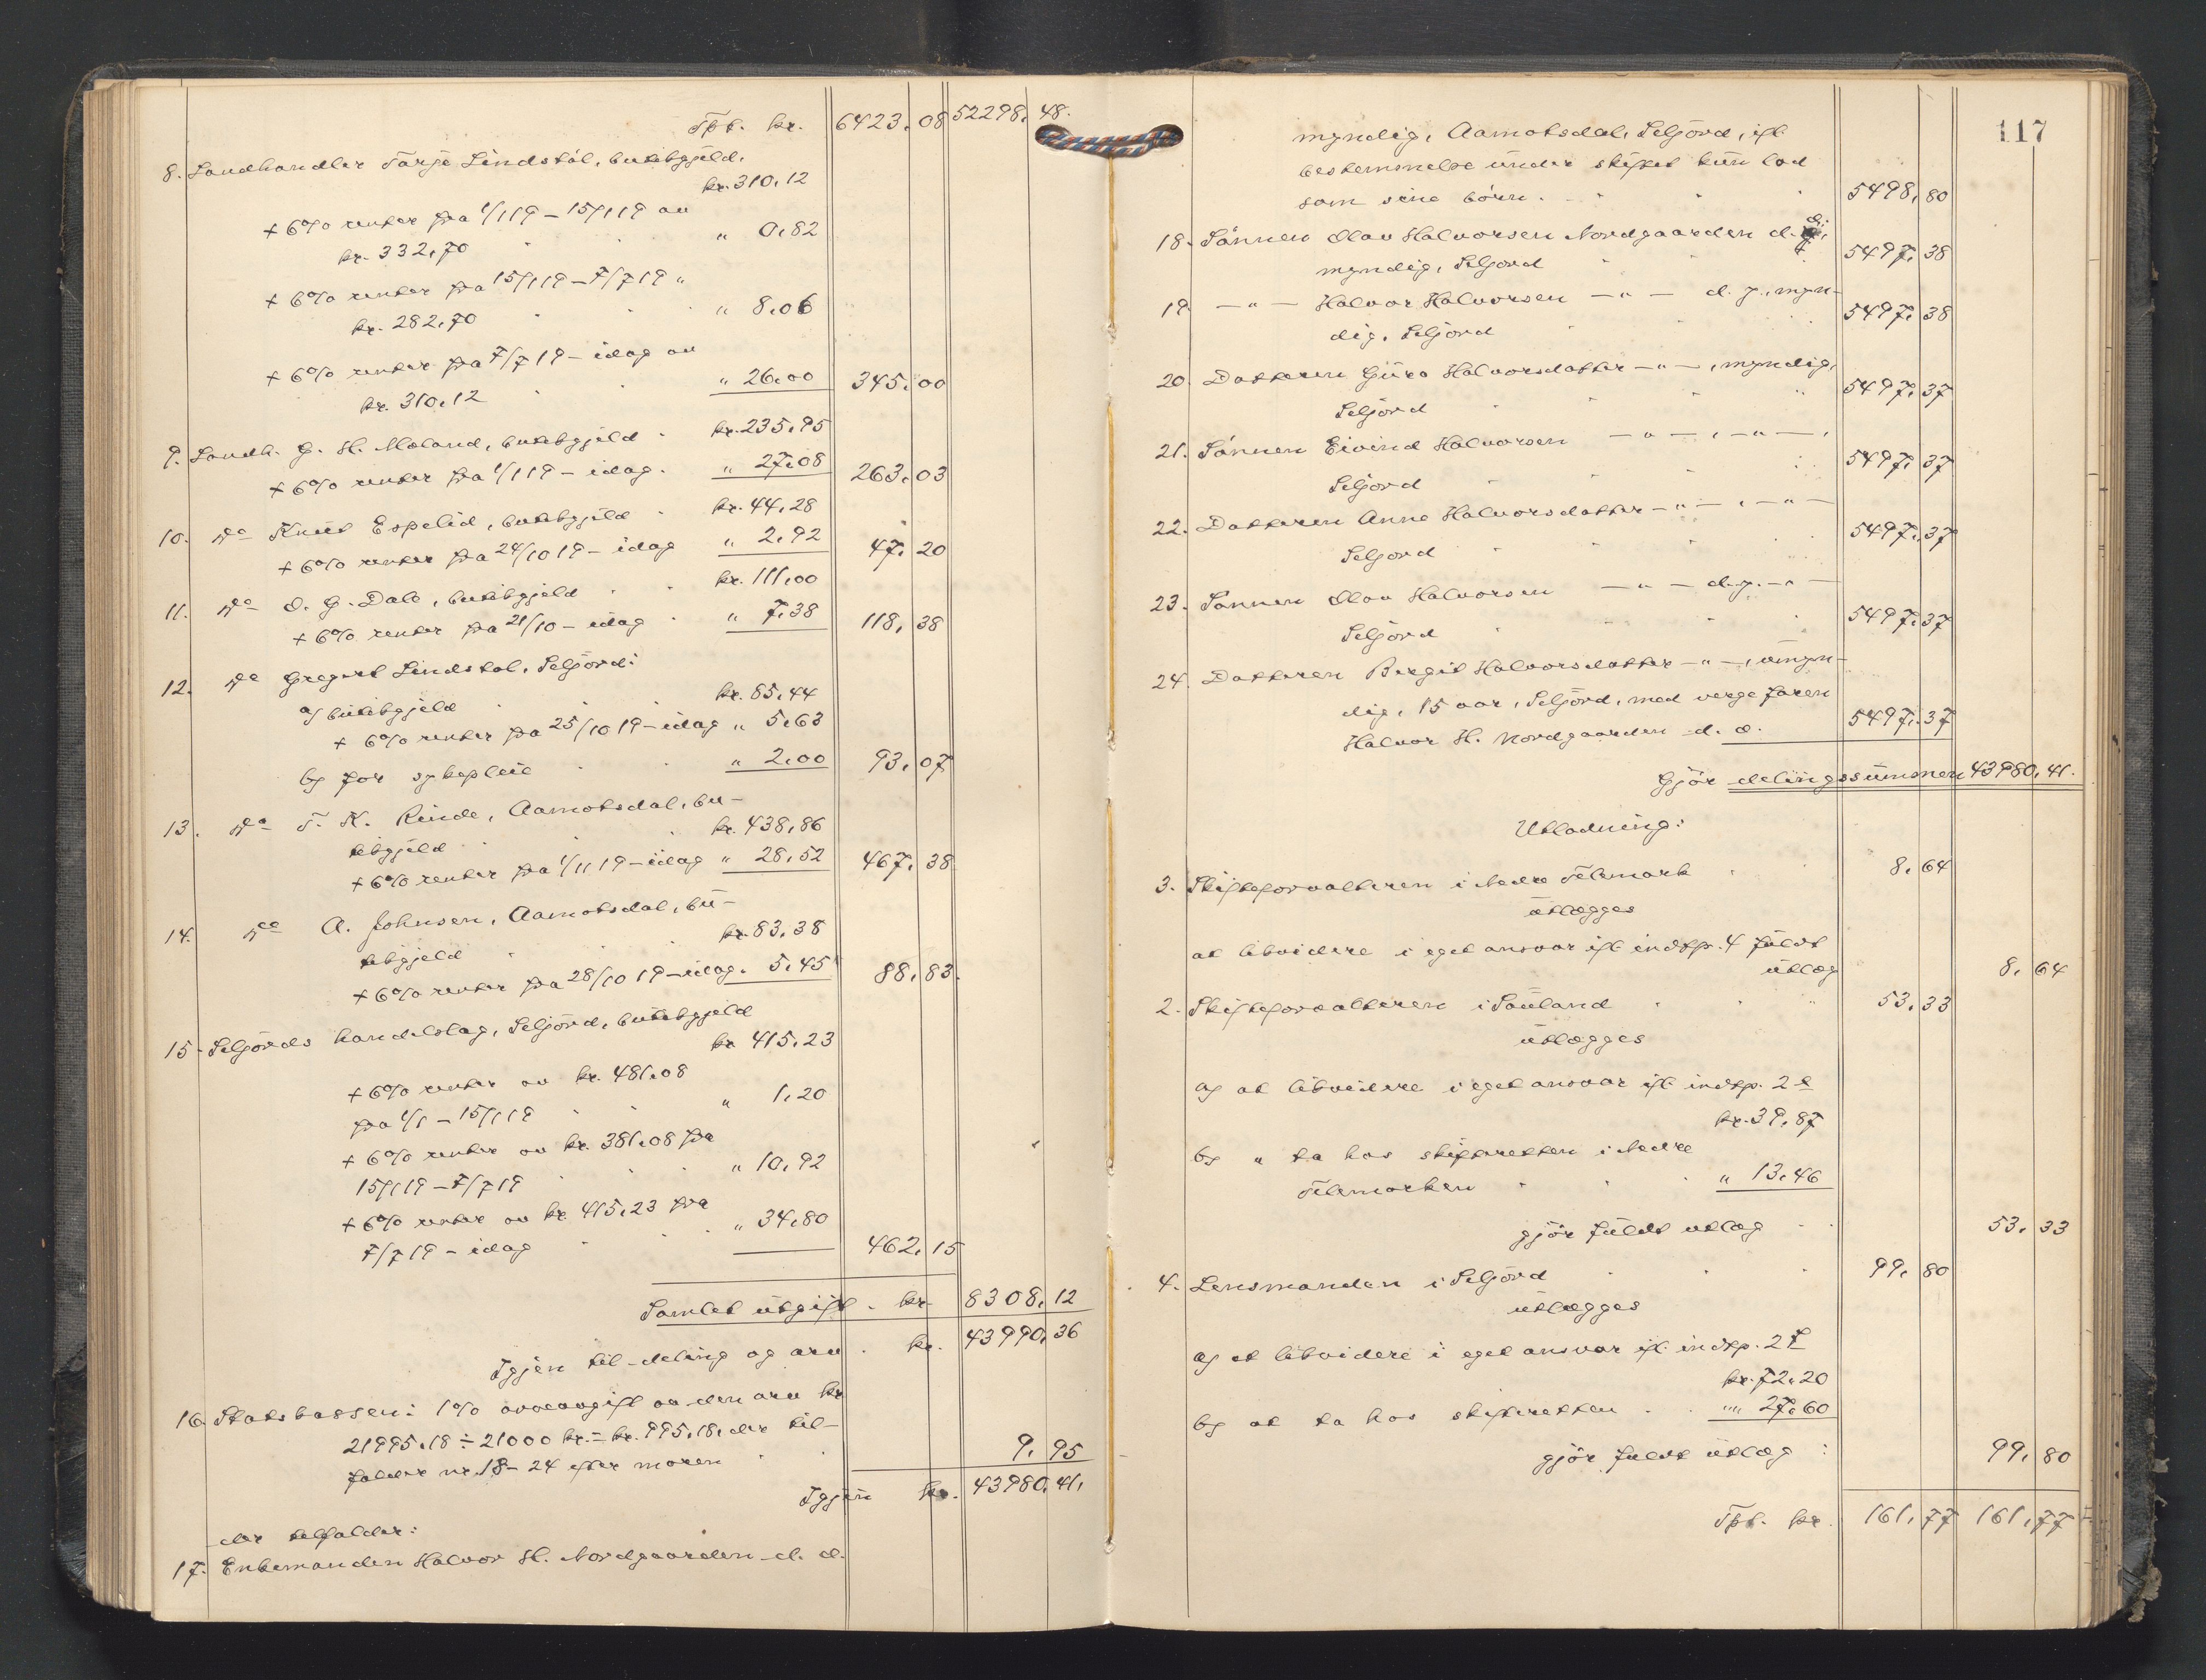 Tpt. kr. 6423,08 52298,48.
8. Landhandler Tarje Lindstøl, butikgjeld,
kr. 310,12
+ 6% renter fra 1/1 19 – 15/1 19 av
kr. 332,70 " 0,82
+ 6% renter fra 15/1 19 – 7/7 19 "
kr. 282,70 " 8,06
+ 6% renter fra 7/7 19 – idag av
kr. 310,12 " 26,00 345,00
9. Landh. G. H. Moland, butikgjeld kr. 235,95
+ 6% renter fra 1/1 19 – idag. " 27,08 263,03
10. do Knut Espelid, butikgjeld kr. 44,28
+ 6% renter fra 24/10 19 – idag " 2,92 47,20
11. do O. G. Dale, butikgjeld kr. 111,00
+ 6% renter fra 21/10 – idag " 7,38 118,38
12. do Gregert Lindstøl, Seljord:
a) butikgjeld kr. 85,44
+ 6% renter fra 25/10 19 – idag " 5,63
b) for sykepleie " 2,00 93,07
13. do T. K. Rinde, Aamotsdal, bu-
tikgjeld kr. 438,86
+ 6% renter fra 1/11 19 – idag " 28,52 467,38
14. do A. Johnsen, Aamotsdal, bu-
tikgjeld kr. 83,38
+ 6% renter fra 28/10 19 – idag. 5,45 88,83.
15. Seljords handelslag, Seljord, butikgjeld
kr 415,23
+ 6% renter av kr. 481,08
fra 1/1 – 15/1 19 " 1,20
+ 6% renter av kr. 381,08 fra
15/1 19 – 7/7 19 " 10,92
+ 6% renter av kr. 415,23 fra
7/7 19 – idag " 34,80 462,15
Samlet utgift kr. 8308,12
Igjen til deling og arv kr. 43990,36
16. Statskassen: 1% arveavgift av den arv kr
21995,18 ÷ 21000 kr. = kr. 995,18, der til-
falder nr. 18 – 24 efter moren 9,95
Igjen kr. 43980,41,
der tilfalder:
17. Enkemanden Halvor H. Nordgaarden d. æ.
117
myndig, Aamotsdal, Seljord, ifl.
bestemmelse under skiftet kun lod
som sine börn. 5498,80
18. Sønnen Olav Halvorsen Nordgaarden d. æ.,
myndig, Seljord 5497,38
19. — " — Halvor Halvorsen — " — d. y., myn-
dig, Seljord 5497,38
20. Datteren Guro Halvorsdatter — " —, myndig,
Seljord 5497,37
21. Sønnen Eivind Halvorsen — " —, — " —,
Seljord 5497,37
22. Datteren Anne Halvorsdatter — " —, — " —
Seljord 5497,37
23. Sønnen Olav Halvorsen — " — d. y. — " —
Seljord 5497,37
24. Datteren Birgit Halvorsdatter — " —, umyn-
dig, 15 aar, Seljord, med verge faren
Halvor H. Nordgaarden d. æ. 5497,37
Gjör delingssummen 43980,41.
Utlodning:
3. Skifteforvalteren i Nedre Telemark 8,64
utlægges
at likvidere i eget ansvar ifl. indtp. 4 fuldt
utlæg 8,64
2. Skifteforvalteren i Sauland 53,33
utlægges
a) at likvidere i eget ansvar ifl. indtp. 2 e
kr. 39,87
b) " ta hos skifteretten i Nedre
Telemarken " 13,46
gjör fuldt utlæg 53,33
4. Lensmanden i Seljord 99,80
utlægges
a) at likvidere i eget ansvar ifl. indtp. 2 f
kr. 72,20
b) at ta hos skifteretten "" 27,60
gjör fuldt utlæg 99,80
Tpt. kr. 161,77 161,77